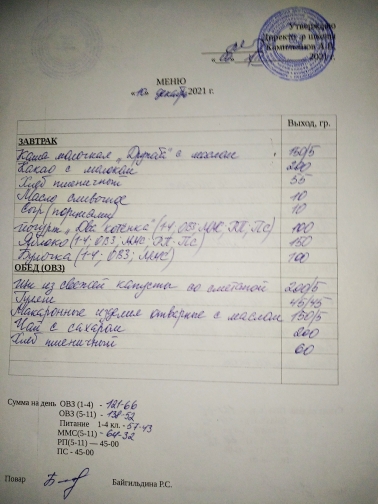 Утверждаю
Директор школы
Камильянов А.Г.
2021г.
МЕНЮ
«10» декабрь 2021 г.
Выход, гр.
ЗАВТРАК
Каша молочная „Дружба" с маслом 150/5
Какао с молоком 200
Хлеб пшеничный 55
Масло сливочное 10
Сыр (порциями) 10
Йогурт „Два коténка" (1-4, ОВЗ; ММС, ЭП, ПС) 100
Яблоко (1-4; ОВЗ; ММС; ЭП; ПС) 150
Булочка (1-4; ОВЗ; ММС) 100
ОБЕД (ОВЗ)
Щи из свежей капусты со сметаной 200/5
Гуляш 45/45
Макаронные изделия отварные с маслом 150/5
Чай с сахаром 200
Хлеб пшеничный 60
Сумма на день ОВЗ (1-4) - 121-66
ОВЗ (5-11) - 138-52
Питание 1-4 кл. - 57-43
ММС(5-11) - 64-32
РП(5-11) — 45-00
ПС - 45-00
Повар Байгильдина Р.С.